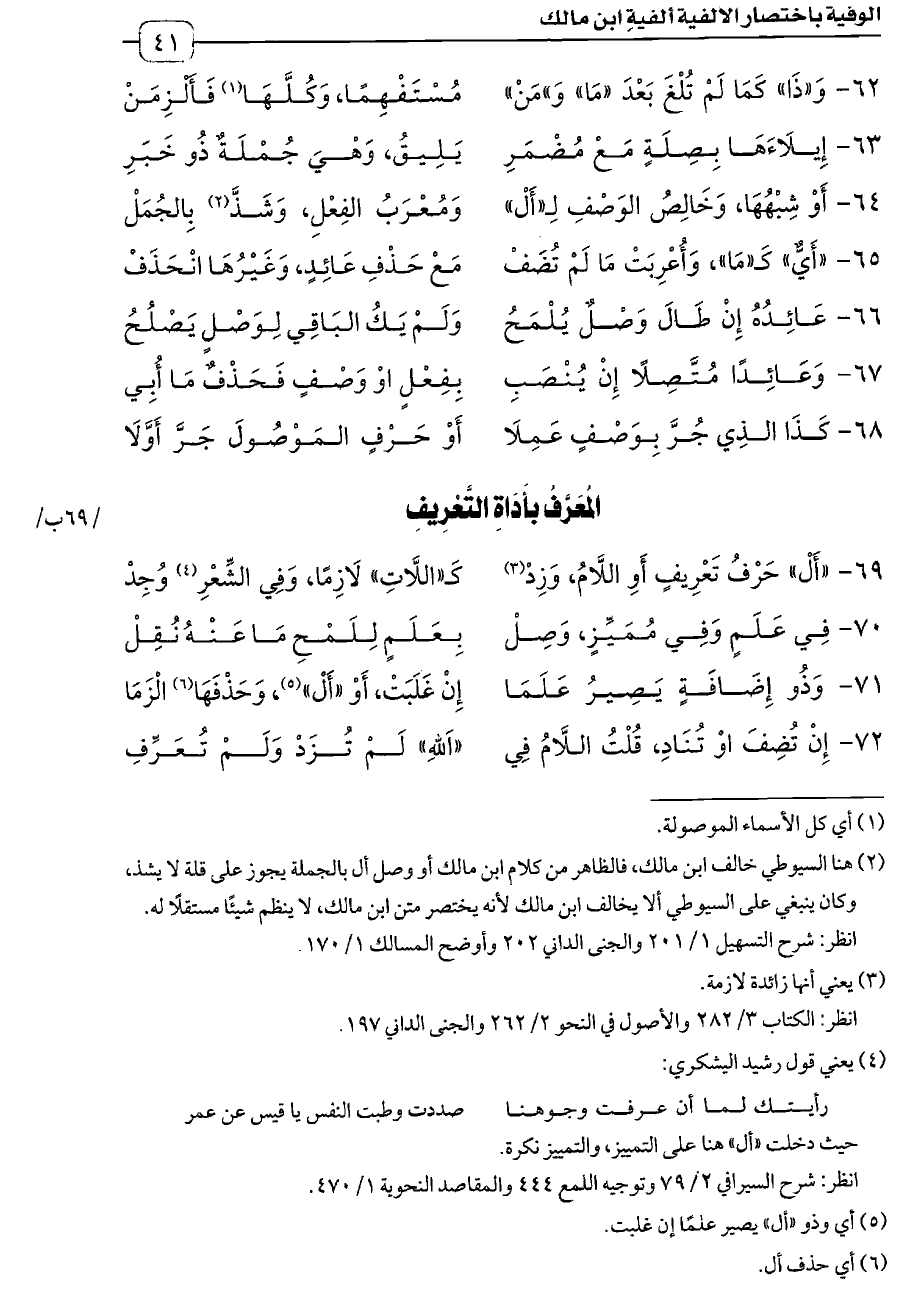 الوفية باختصار الالفية ألفية ابن مالك
٤١
٦٢- وَ«ذَا» كَمَا لَمْ تُلْغَ بَعْدَ «مَا» وَ«مَنْ» مُسْتَفْهِمًا، وَكُلَّهَا(١) فَأَلْزِمَنْ
٦٣- إِيلَاءَهَا بِصِلَةٍ مَعْ مُضْمَرِ يَلِيقُ، وَهْيَ جُمْلَةٌ ذُو خَبَرِ
٦٤- أَوْ شِبْهُهَا، وَخَالِصُ الوَصْفِ لِـ«أَلْ» وَمُعْرَبُ الفِعْلِ، وَشَذَّ(٢) بِالجُمَلْ
٦٥- «أَيٌّ» كَـ«مَا»، وَأُعْرِبَتْ مَا لَمْ تُضَفْ مَعْ حَذْفِ عَائِدٍ، وَغَيْرُهَا انْحَذَفْ
٦٦- عَائِدُهُ إِنْ طَالَ وَصْلٌ يُلْمَحُ وَلَمْ يَكُ البَاقِي لِوَصْلٍ يَصْلُحُ
٦٧- وَعَائِدًا مُتَّصِلًا إِنْ يُنْصَبِ بِفِعْلٍ اوْ وَصْفٍ فَحَذْفٌ مَا أُبِي
٦٨- كَذَا الذِي جُرَّ بِوَصْفٍ عَمِلَا أَوْ حَرْفِ المَوْصُولَ جَرَّ أَوَّلَا
المُعَرَّفُ بِأَدَاةِ التَّعْرِيفِ
/٦٩ب/
٦٩- «أَلْ» حَرْفُ تَعْرِيفٍ أَوِ اللَّامُ، وَزِدْ(٣) كَـ«اللَّاتِ» لَازِمًا، وَفِي الشِّعْرِ(٤) وُجِدْ
٧٠- فِي عَلَمٍ وَفِي مُمَيِّزٍ، وَصِلْ بِعَلَمٍ لِلَمْحِ مَا عَنْهُ نُقِلْ
٧١- وَذُو إِضَافَةٍ يَصِيرُ عَلَمَا إِنْ غَلَبَتْ، أَوْ «أَلْ»(٥)، وَحَذْفَهَا(٦) الْزَمَا
٧٢- إِنْ تُضِفَ اوْ تُنَادِ، قُلْتُ اللَّامُ فِي «اَللهِ» لَمْ تُزَدْ وَلَمْ تُعَرِّفِ
(١) أي كل الأسماء الموصولة.
(٢) هنا السيوطي خالف ابن مالك، فالظاهر من كلام ابن مالك أو وصل أل بالجملة يجوز على قلة لا يشذ،
وكان ينبغي على السيوطي ألا يخالف ابن مالك لأنه يختصر متن ابن مالك، لا ينظم شيئًا مستقلًا له.
انظر: شرح التسهيل ١/ ٢٠١ والجنى الداني ٢٠٢ وأوضح المسالك ١/ ١٧٠.
(٣) يعني أنها زائدة لازمة.
انظر: الكتاب ٣/ ٢٨٢ والأصول في النحو ٢/ ٢٦٢ والجنى الداني ١٩٧.
(٤) يعني قول رشيد اليشكري:
رأيتك لما أن عرفت وجوهنا صددت وطبت النفس يا قيس عن عمر
حيث دخلت «أل» هنا على التمييز، والتمييز نكرة.
انظر: شرح السيرافي ٢/ ٧٩ وتوجيه اللمع ٤٤٤ والمقاصد النحوية ١/ ٤٧٠.
(٥) أي وذو «أل» يصير علمًا إن غلبت.
(٦) أي حذف أل.